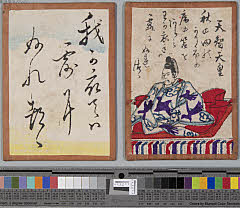 天智天皇
秋の田の
かりほの
庵の苫を
あらみ
わか衣手は
露にぬれ
つゝ
我か衣てハ
露耳
ぬれつゝ